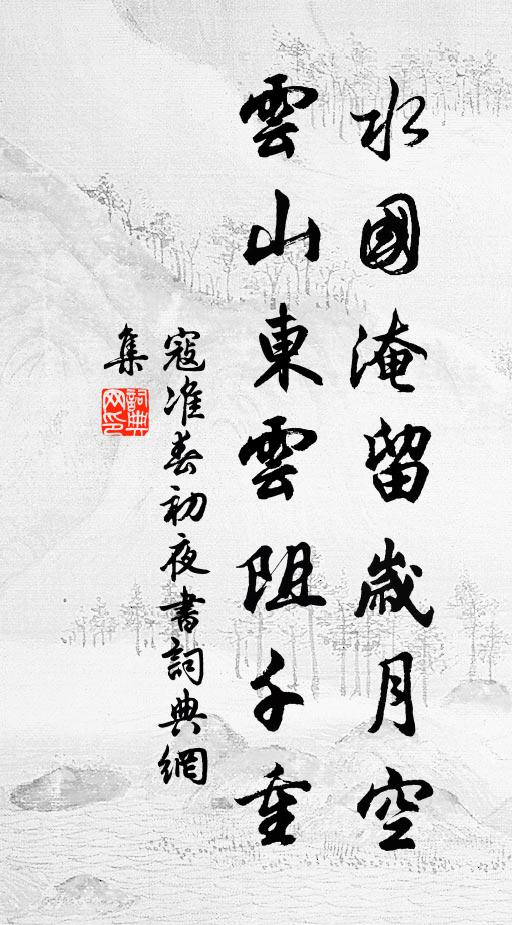 水國淹留歲月空
雲山東雲阻千重
寇准春初夜書詞典網
集
詞典
网印